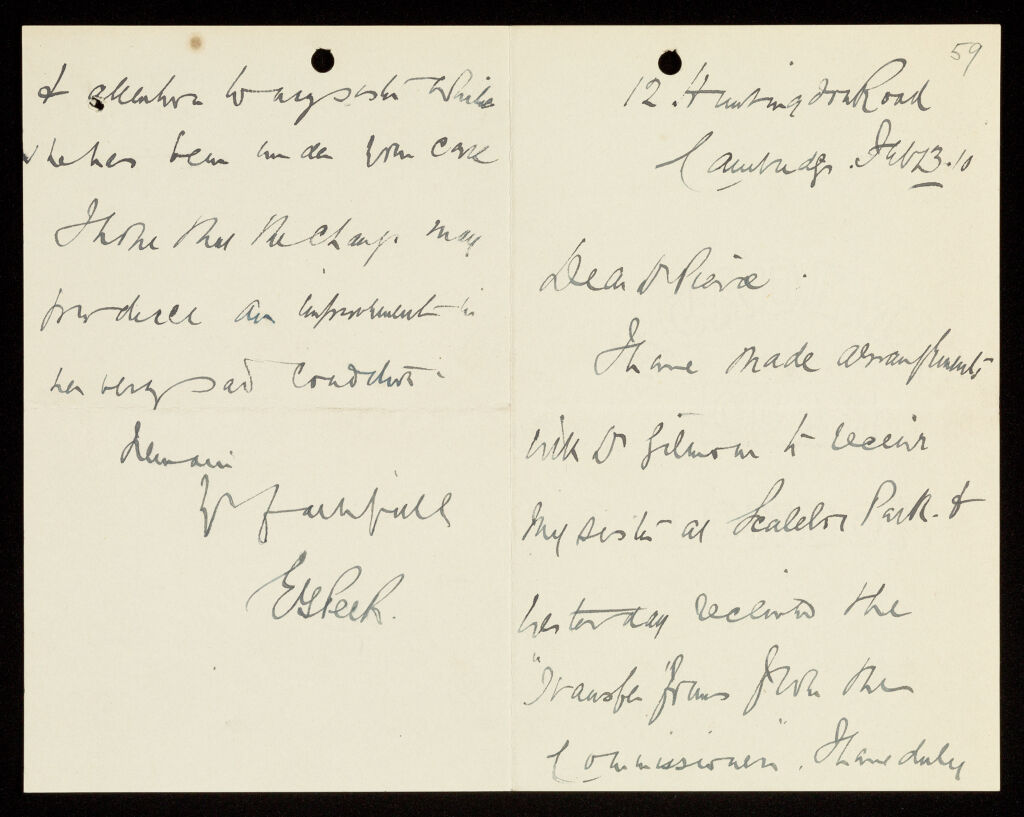 59
12 Huntingdon Road
Cambridge. Feb 23. 10
Dear Dr Pierce
I have made arrangements
with Dr Gilmour to receive
my sister at Scalebor Park. &
yesterday received the
"Transfer" forms from the
Commissioners. I have duly
& attention to my sister while
she has been under your care
I hope that the change may
produce an improvement in
her very sad condition.
I remain
Yrs faithfully
E G Peck.